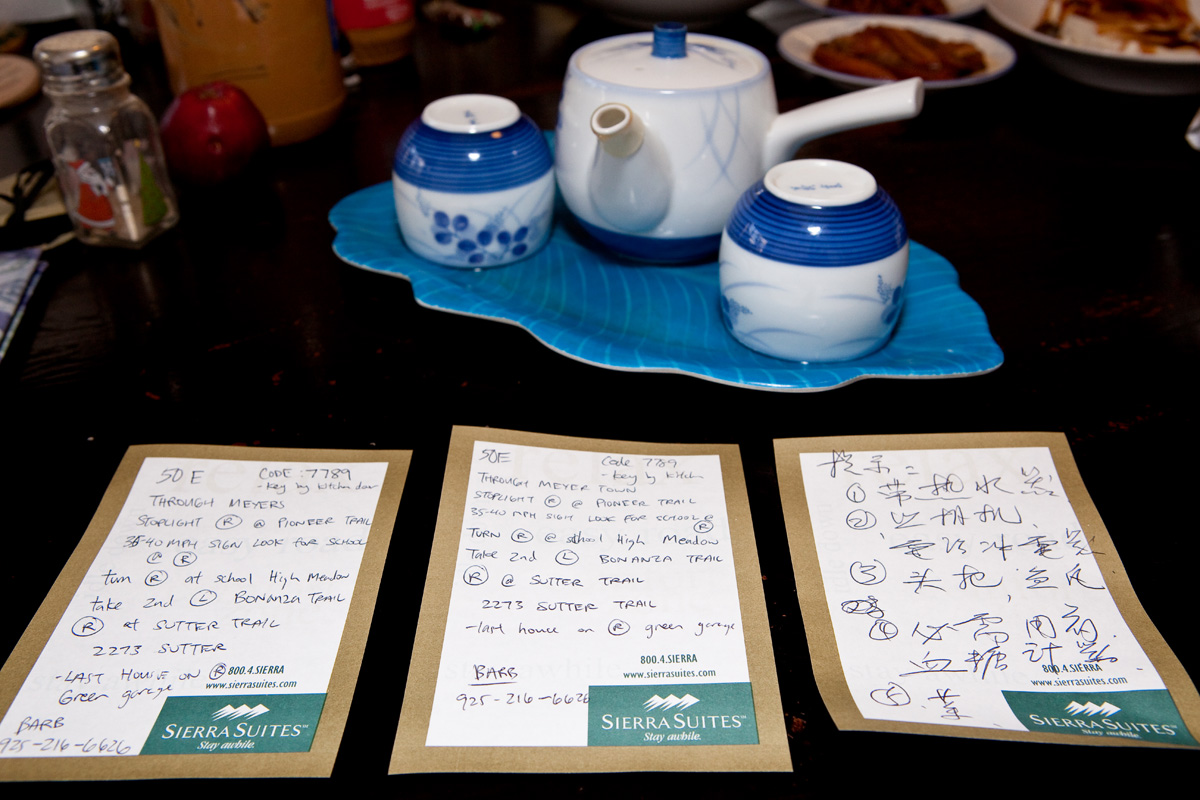 50 E CODE: 7789
- key by kitchn door
THROUGH MEYERS
STOPLIGHT Ⓡ @ PIONEER TRAIL
35-40 MPH SIGN LOOK FOR SCHOOL
@ Ⓡ
turn Ⓡ at school High Meadow
take 2nd Ⓛ BONANZA TRAIL
Ⓡ at SUTTER TRAIL
2273 SUTTER
-LAST HOUSE ON Ⓡ
Green garage
BARB
925-216-6626
800.4.SIERRA
www.sierrasuites.com
SIERRA SUITES SM
Stay awhile.
50E Code 7789
- key by kitchn
THROUGH MEYER TOWN
STOPLIGHT Ⓡ @ PIONEER TRAIL
35-40 MPH SIGN LOOK FOR SCHOOL @
Ⓡ
TURN Ⓡ @ school High Meadow
Take 2nd Ⓛ BONANZA TRAIL
Ⓡ @ SUTTER TRAIL
2273 SUTTER TRAIL
-last house on Ⓡ green garage
BARB
925-216-6626
800.4.SIERRA
www.sierrasuites.com
SIERRA SUITES SM
Stay awhile.
提示:
① 帶热水
②相机
電池冲電器
③
④ 必需用葯
血糖計
⑤
800.4.SIERRA
www.sierrasuites.com
SIERRA SUITES SM
Stay awhile.